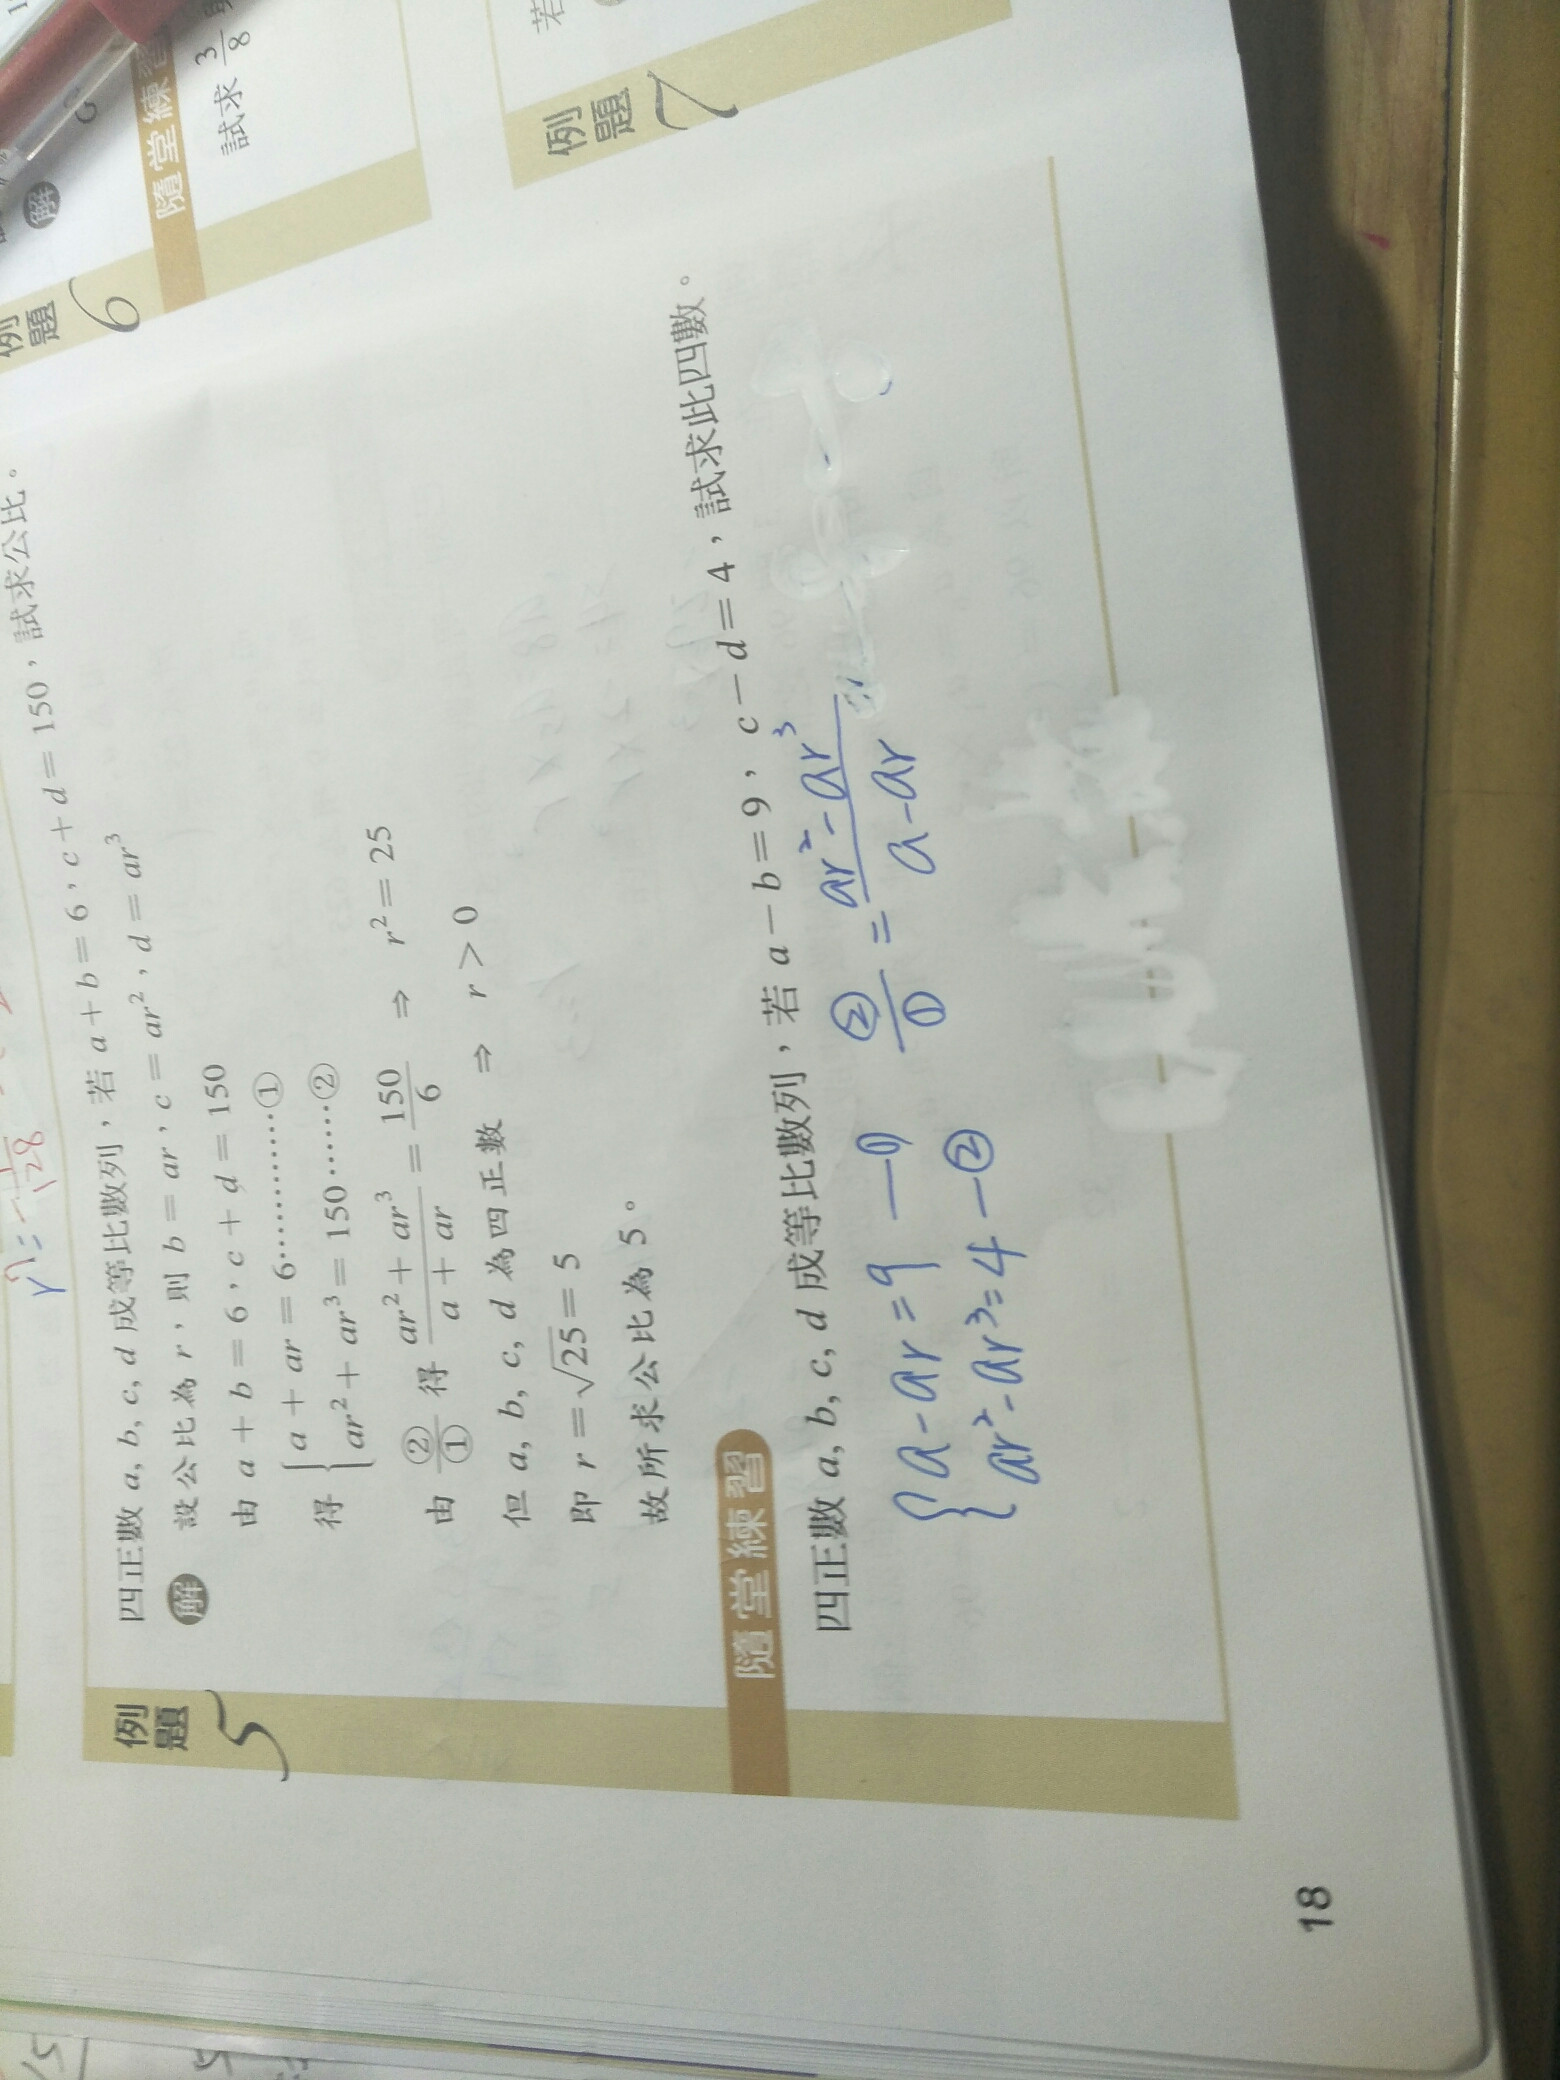 例題 5
四正數 a, b, c, d 成等比數列，若 a + b = 6，c + d = 150，試求公比。
解 設公比為 r，則 b = ar，c = ar²，d = ar³
由 a + b = 6，c + d = 150
得 { a + ar = 6…………①
ar² + ar³ = 150……②
由 ②/① 得 (ar² + ar³)/(a + ar) = 150/6 ⇒ r² = 25
但 a, b, c, d 為四正數 ⇒ r > 0
即 r = √25 = 5
故所求公比為 5。
隨堂練習
四正數 a, b, c, d 成等比數列，若 a − b = 9，c − d = 4，試求此四數。
{ a - ar = 9 —①
ar² - ar³ = 4 —②
②/① = (ar² - ar³)/(a - ar)
18
例題 6
解
隨堂練習
試求 3/8
例題 7
若